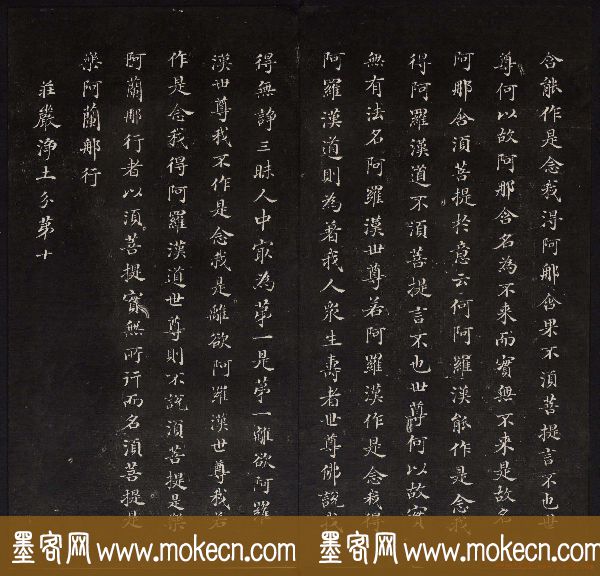 含能作是念我得阿那含果不須菩提言不也世
尊何以故阿那含名為不來而實無不來是故名
阿那含須菩提於意云何阿羅漢能作是念我
得阿羅漢道不須菩提言不也世尊何以故實
無有法名阿羅漢世尊若阿羅漢作是念我得
阿羅漢道則為着我人衆生壽者世尊佛說我
得無諍三昧人中冣為第一是第一離欲阿羅
漢世尊我不作是念我是離欲阿羅漢世尊我若
作是念我得阿羅漢道世尊則不說須菩提是樂
阿蘭那行者以須菩提實無所行而名須菩提是
樂阿蘭那行
莊嚴淨土分第十
墨客网 www.mokecn.com 墨客网 www.mokecn.com